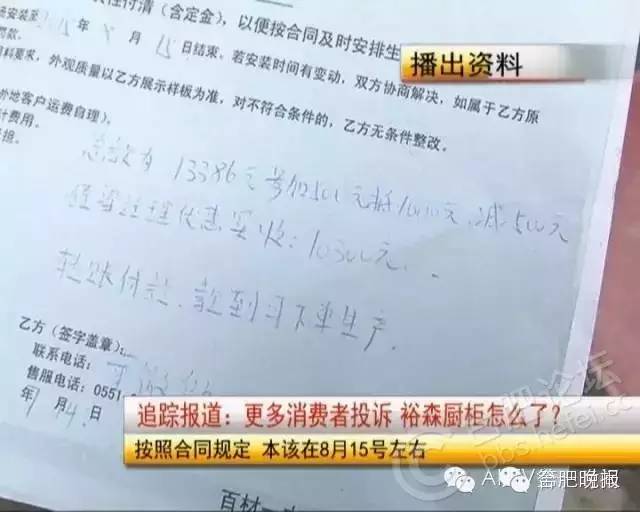 性付清（含定金），以便按合同及时安排生
安装至2015年8月15日结束，若安装时间有变动，双方协商解决，如属于乙方原
罚款。
料要求，外观质量以乙方展示样板为准，对不符合条件的，乙方无条件整改。
外地客户运费自理）。
计费用。
担。
总款为13386元
500元抵1000元，减500元
经理优惠实收：10300元．
转账付款，款到可下单生产．
乙方（签字盖章）：
联系电话：
售服电话：0551
年 月 日
播出资料
追踪报道：更多消费者投诉 裕森厨柜怎么了？
按照合同规定 本该在8月15号左右
合肥论坛
bbs.hefei.com
合肥晚报
百材